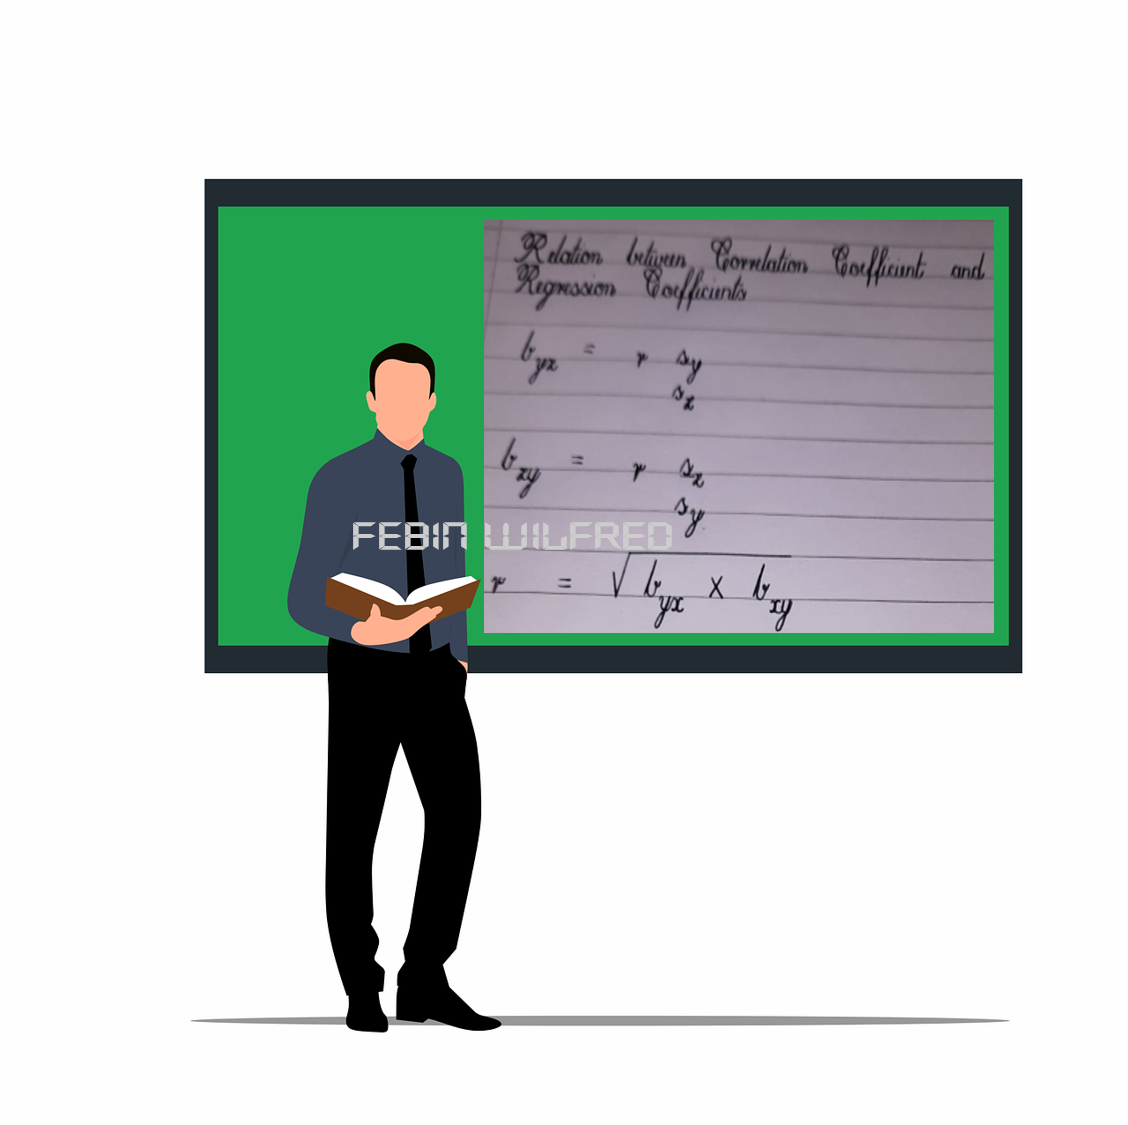 Relation between Correlation Coefficient and
Regression Coefficients
byx = r sy
sx
bxy = r sx
sy
FEBIN WILFRED
r = √byx X bxy